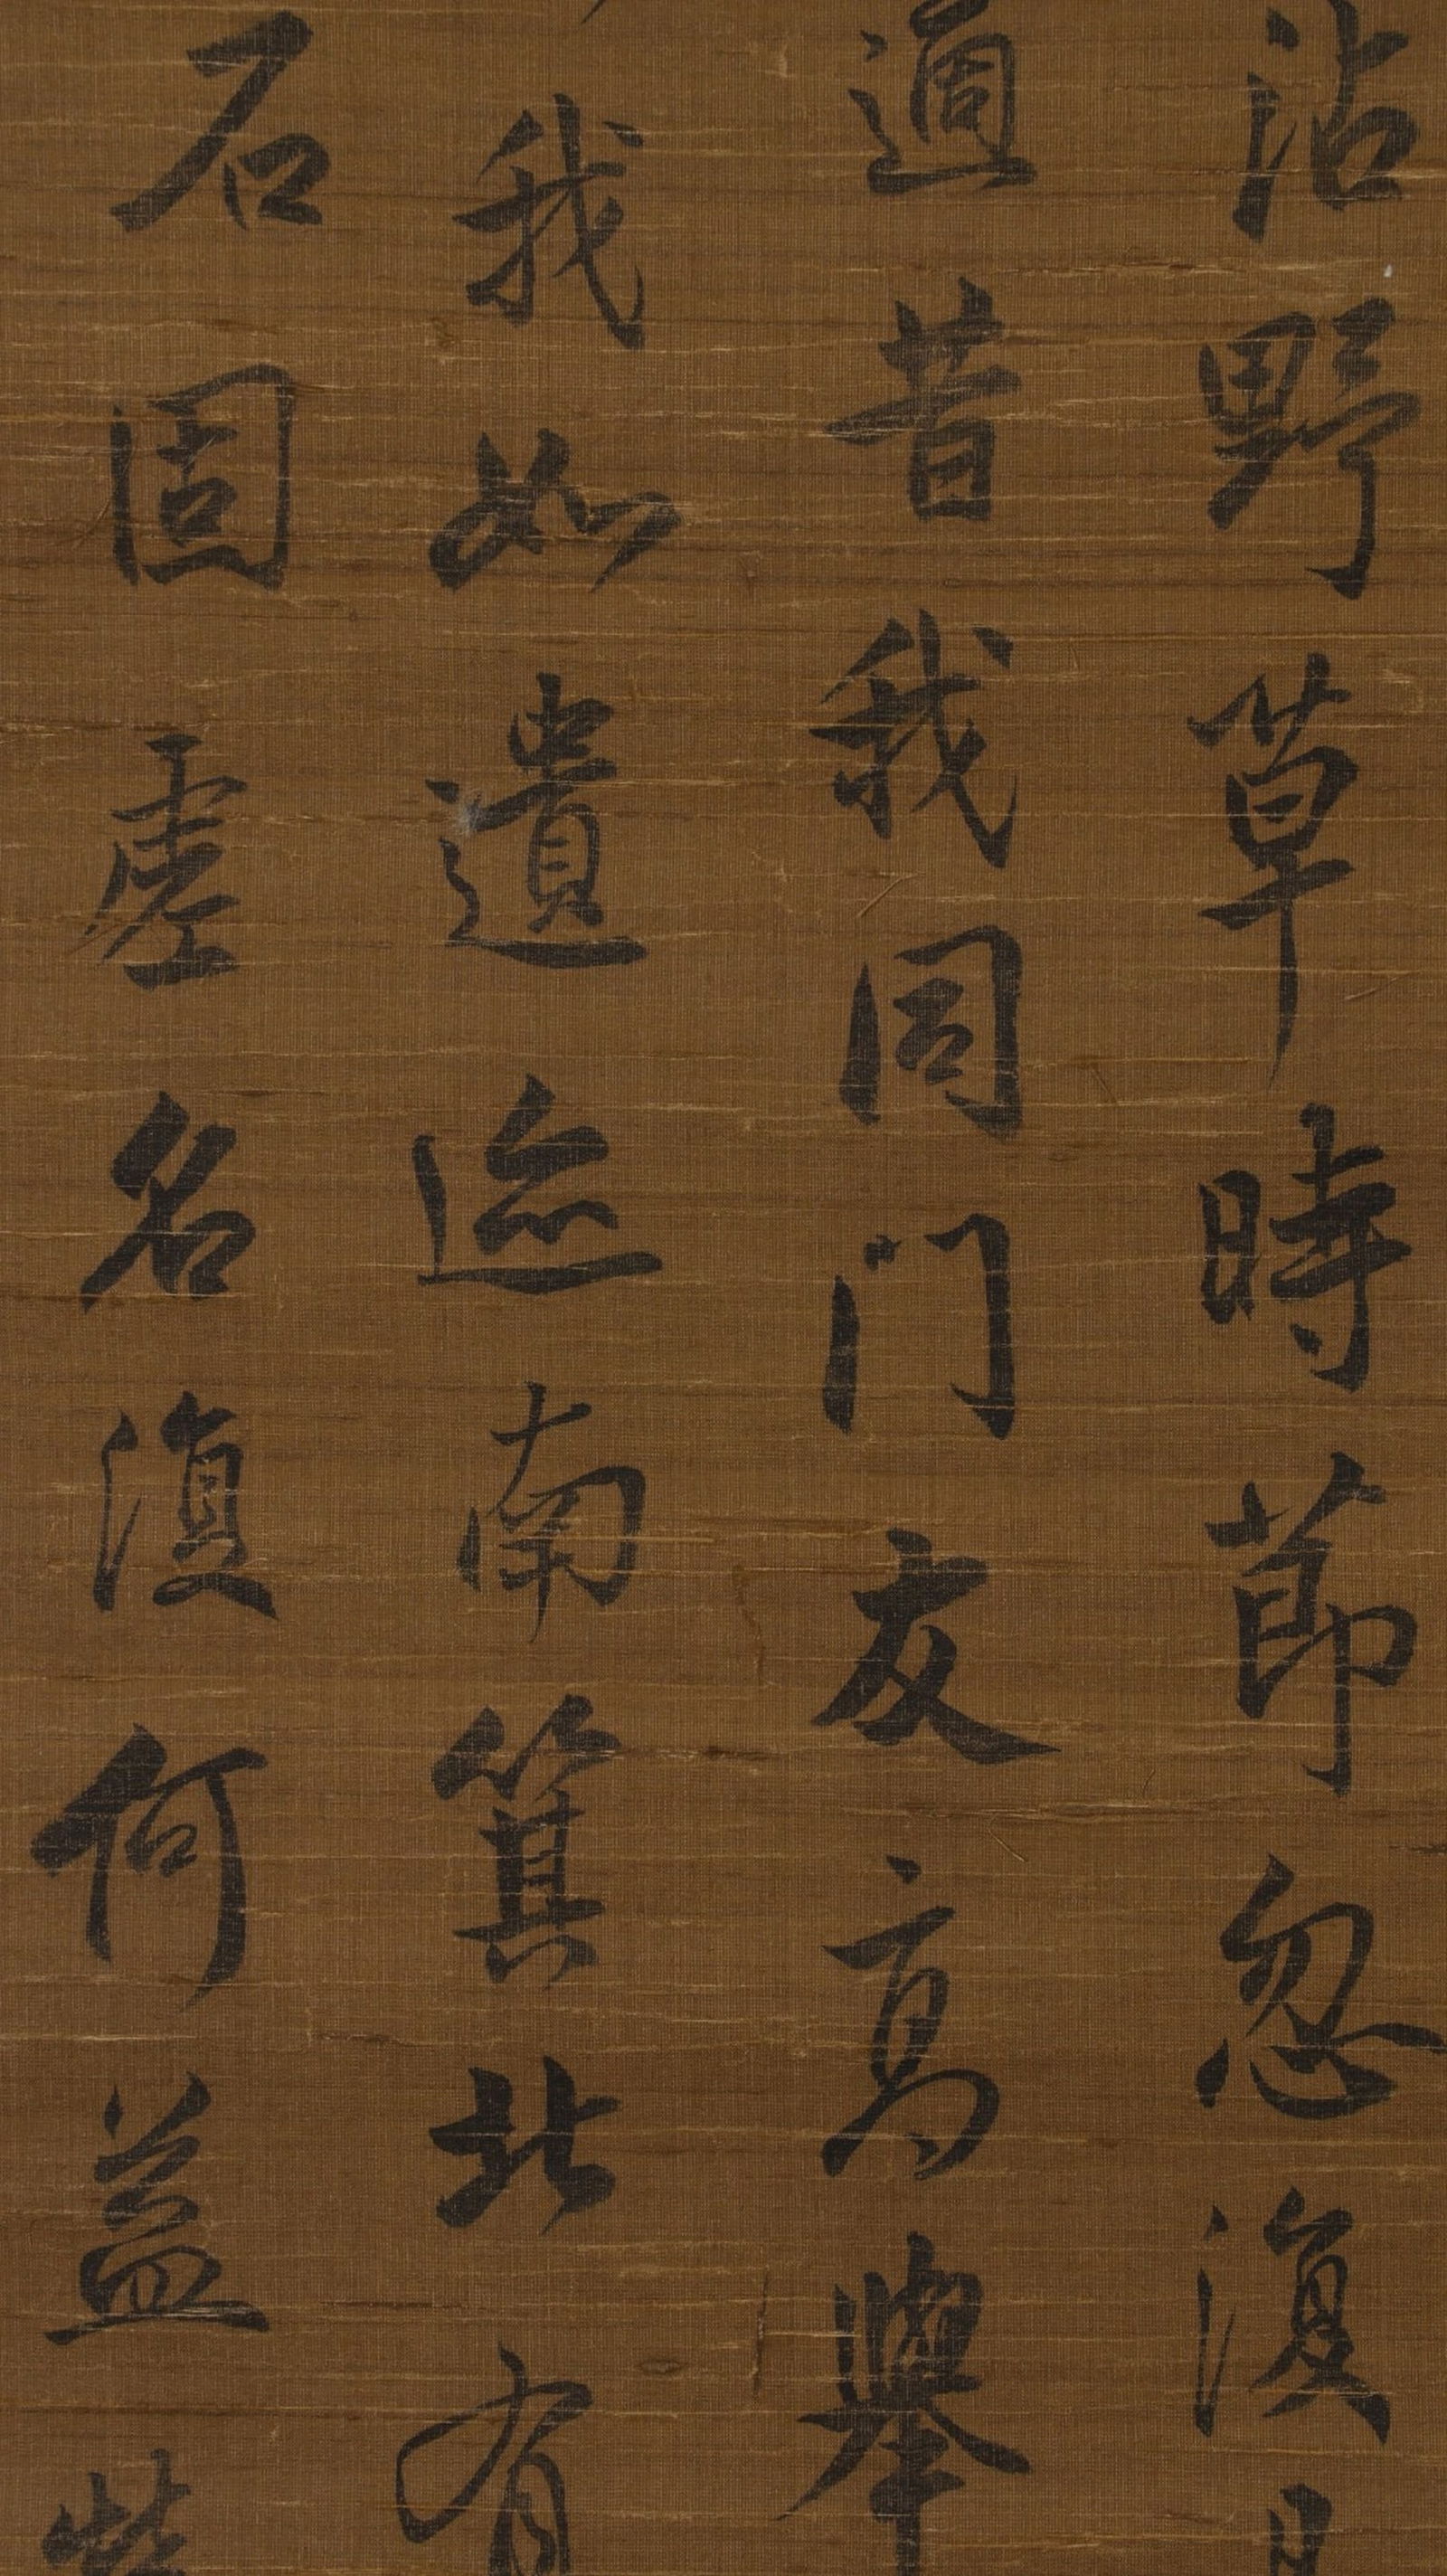 沾野草時節忽復
適昔我同門友高舉
我如遺迹南箕北有
石固虛名復何益